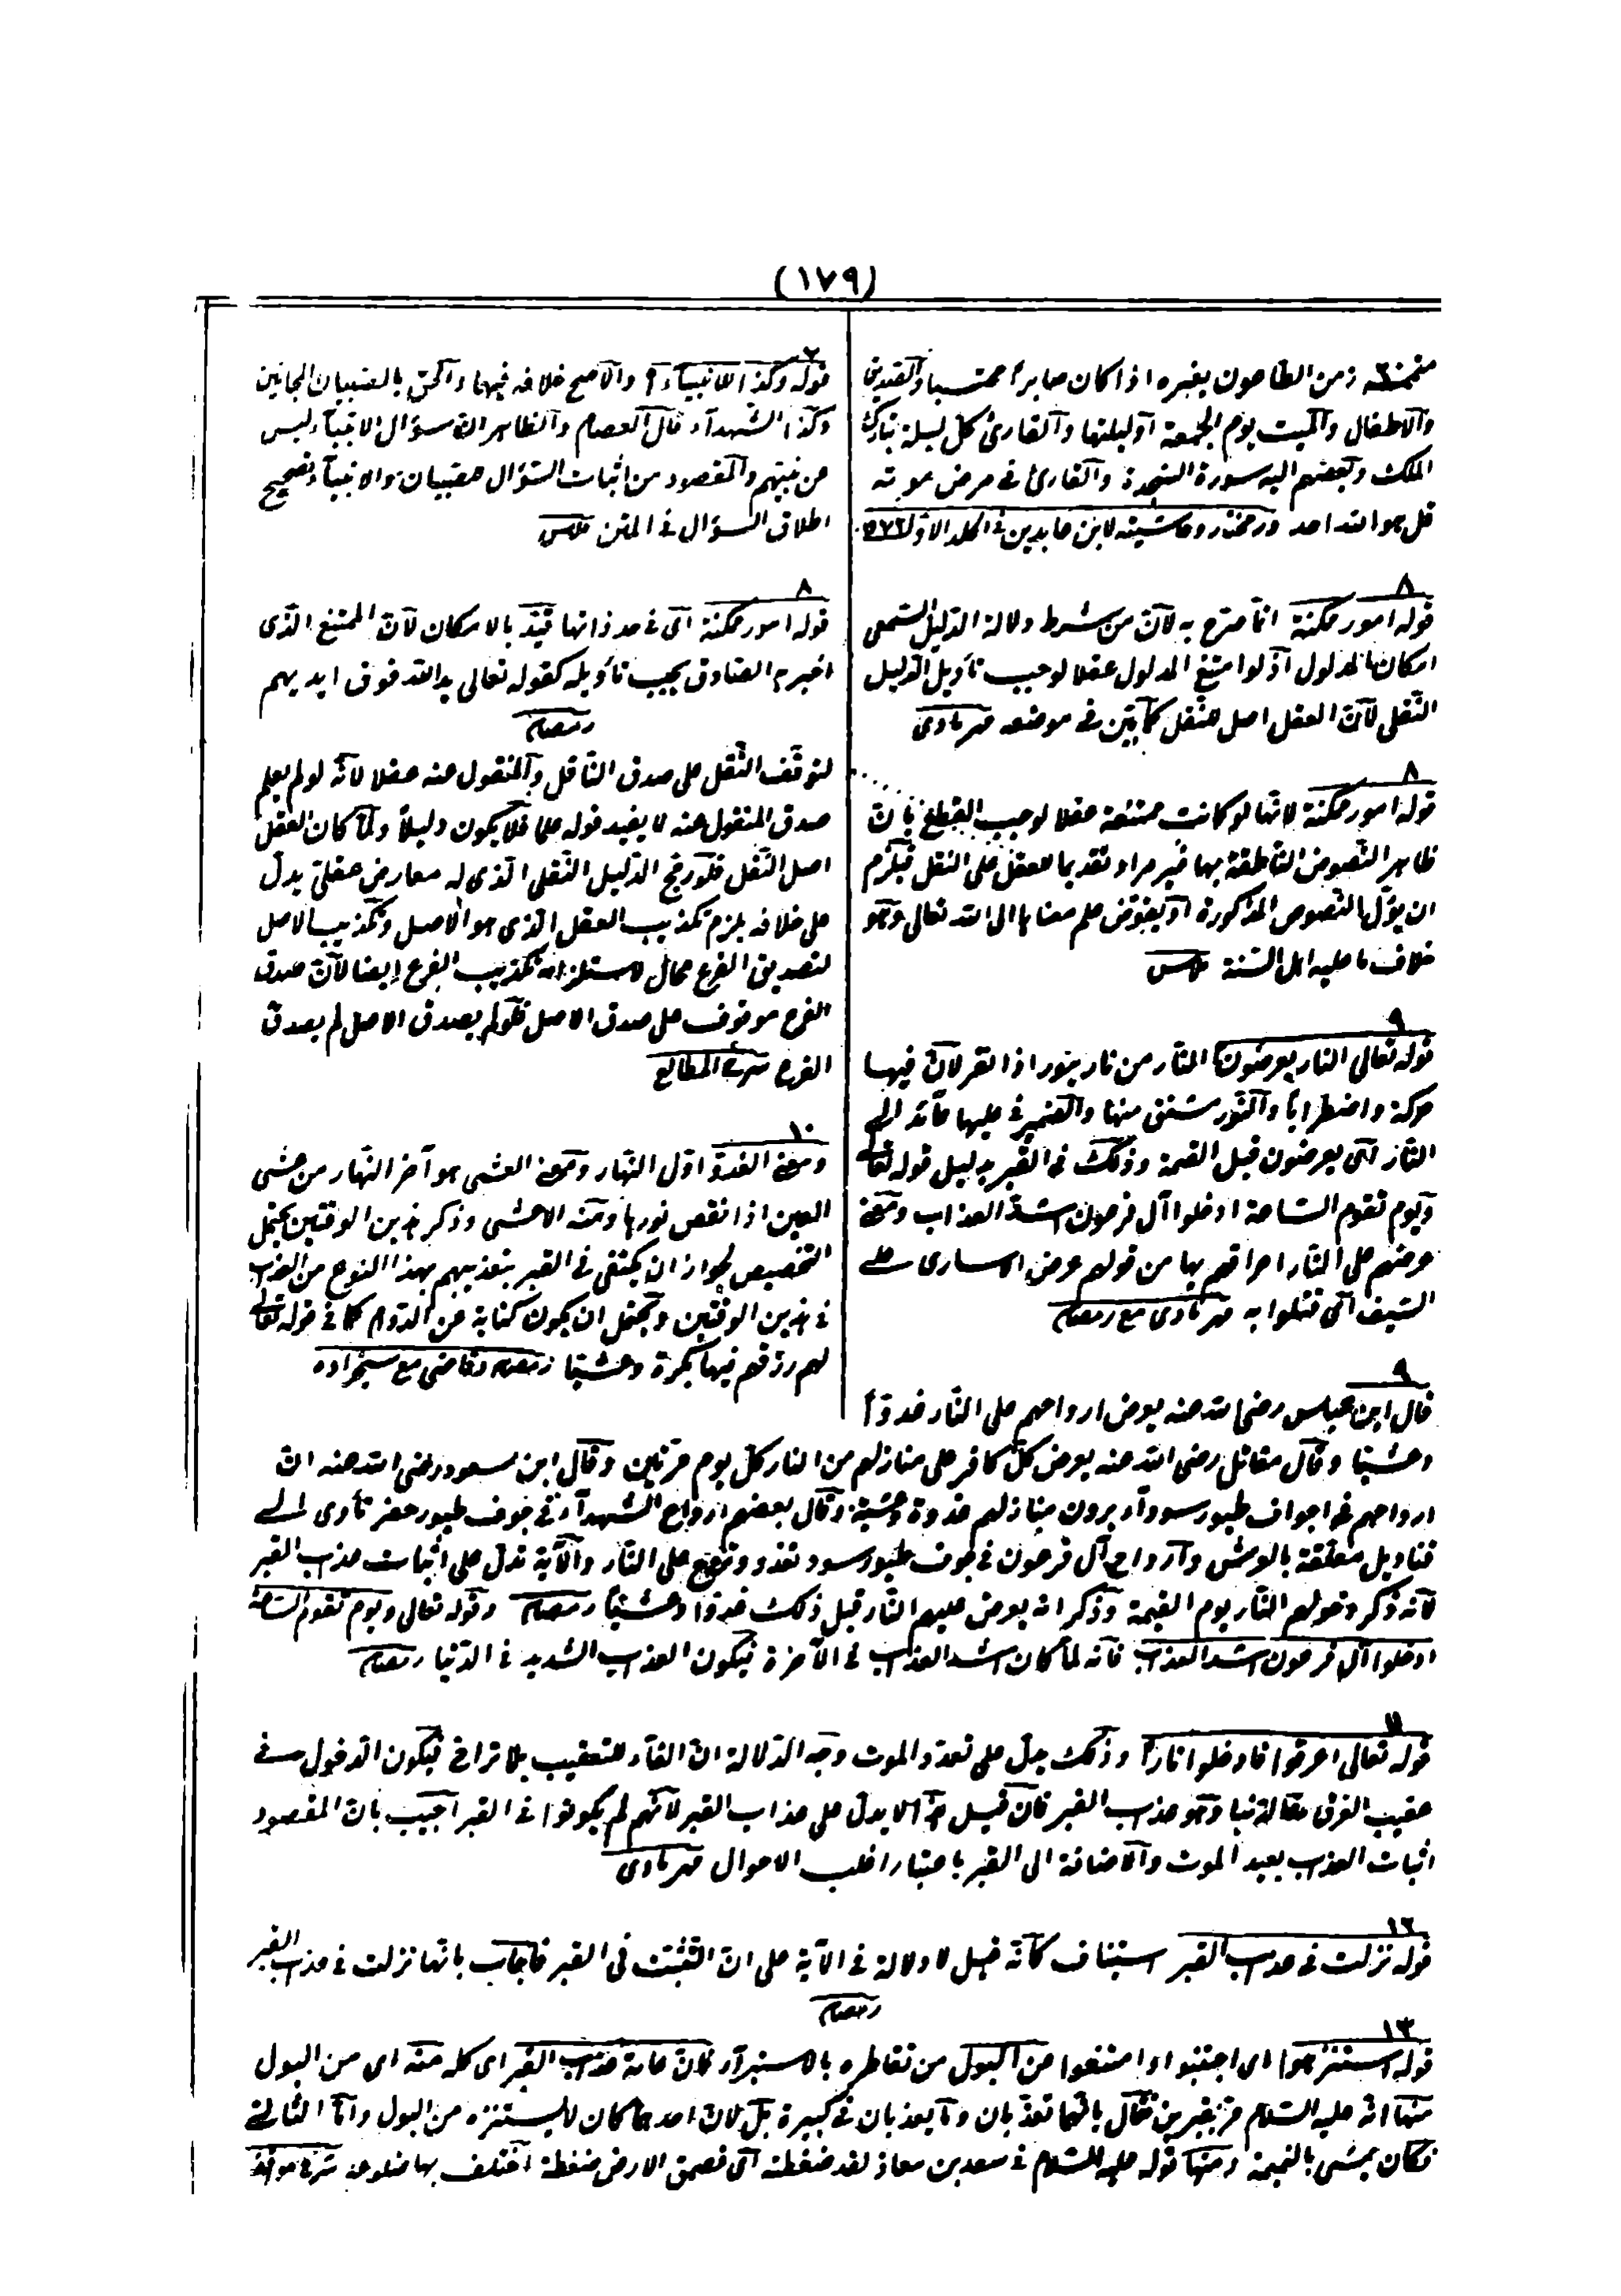 (١٧٩)
زمن الطاعون بغيره اذا كان صابرا محتسبا والصديق
والاطفال والميت يوم الجمعة او ليلتها والقارئ كل ليلة تبارك
الملك وبعضهم اليه سورة السجدة والقارئ في مرض موته
قل هو الله احد در مختار وحاشيته لابن عابدين في الجلد الاول ٥٧٢
٨
قوله امور ممكنة انما صرح به لان من شرط دلالة الدليل السمعى
امكان المدلول اذ لو امتنع المدلول عقلا لوجب تأويل الدليل
النقلى لان العقل اصل للنقل كما بين في موضعه
٨
قوله امور ممكنة لانها لو كانت ممتنعة عقلا لوجب القطع بان
ظاهر النصوص الناطقة بها غير مراد تقديما للعقل على النقل فيلزم
ان يؤل النصوص المذكورة او يفوض علم معناها الى الله تعالى وهو
خلاف ما عليه اهل السنة
٩
قوله تعالى النار يعرضون النار من نار ينور اذا نفر لان فيها
حركة واضطرابا والنور مشتق منها والضمير في عليها عائد الى
النار اى يعرضون قبل القيمة وذلك في القبر بدليل قوله تعالى
ويوم تقوم الساعة ادخلوا آل فرعون اشد العذاب ومعنى
عرضهم على النار احراقهم بها من قولهم عرض الاسارى على
السيف اى قتلوا به مع رمضان
٩
قال ابن عباس رضى الله عنه يعرض ارواحهم على النار غدوا
٢
قوله وكذا للانبياء والاصح خلافه فيها والحق بالصبيان المجانين
وكذا الشهداء قال العصام والظاهر ان سؤال الانبياء ليس
عن نبيهم والمقصود من اثبات السؤال للصبيان والانبياء تصحيح
اطلاق السؤال في المتن
٨
قوله امور ممكنة اى في حد ذاتها قيد بالامكان لان الممتنع الذى
اخبره الصادق يجب تأويله كقوله تعالى يد الله فوق ايديهم
رمضان
لتوقف النقل على صدق الناقل والمنقول عنه عقلا لانه لو لم يعلم
صدق المنقول عنه لا يفيد قوله علما فلا يكون دليلا ولما كان العقل
اصل النقل فلو رجح الدليل النقلى الذى له معارض عقلى يدل
على خلافه يلزم تكذيب العقل الذى هو الاصل وتكذيب الاصل
لتصديق الفرع محال لاستلزامه تكذيب الفرع ايضا لان صدق
الفرع موقوف على صدق الاصل فلو لم يصدق الاصل لم يصدق
الفرع شرح المطالع
١٠
ومعنى الغدو اول النهار ومعنى العشى هو آخر النهار من عشى
العين اذا نقص نورها ومنه الاعشى وذكر هذين الوقتين يحتمل
التخصيص لجواز ان يكتفى في القبر بتعذيبهم بهذا النوع من العذاب
في هذين الوقتين ويحتمل ان يكون كناية عن الدوام كما في قوله تعالى
لهم رزقهم فيها بكرة وعشيا رمضان وقاضى مع شيخزاده
وعشيا وقال مقاتل رضى الله عنه يعرض كل كافر على منازلهم من النار كل يوم مرتين وقال ابن مسعود رضى الله عنه ان
ارواحهم في اجواف طيور سوداء يرون منازلهم غدوة وعشية وقال بعضهم ارواح الشهداء في جوف طيور خضر تأوى الى
قناديل معلقة بالعرش وارواح آل فرعون في جوف طيور سود تغدو وتروح على النار والآية تدل على اثبات عذاب القبر
لانه ذكر دخولهم النار يوم القيمة وذكر انه يعرض عليهم النار قبل ذلك غدوا وعشيا رمضان وقوله تعالى ويوم تقوم الساعة
ادخلوا آل فرعون اشد العذاب فانه لما كان اشد العذاب في الآخرة فيكون العذاب الشديد في الدنيا رمضان
١١
قوله تعالى اغرقوا فادخلوا نارا وذلك يدل على تعدد الموت وجه الدلالة ان الفاء للتعقيب بلا تراخى فيكون الدخول في
عقيب الغرق وهو عذاب القبر فان قيل هذا لا يدل على عذاب القبر لانهم لم يكونوا في القبر اجيب بان المقصود
اثبات العذاب بعيد الموت والاضافة الى القبر باعتبار اغلب الاحوال
١٢
قوله نزلت في عذاب القبر استيناف كأنه قيل لا دلالة في الآية على ان التثبت في القبر فاجاب بانها نزلت في عذاب القبر
رمضان
١٣
قوله استنزهوا اى اجتنبوا او امتنعوا من البول من تقاطره بالاستبراء فان عامة عذاب القبر اى كله منه اى من البول
منها انه عليه السلام مر بقبرين فقال بانهما تعذبان وما يعذبان في كبيرة بل لان احدهما كان لا يستنزه من البول واما الثانى
فكان يمشى بالنميمة ومنها قوله عليه السلام في سعد بن معاذ لقد ضغطته الارض ضغطة اختلف بها ضلوعه